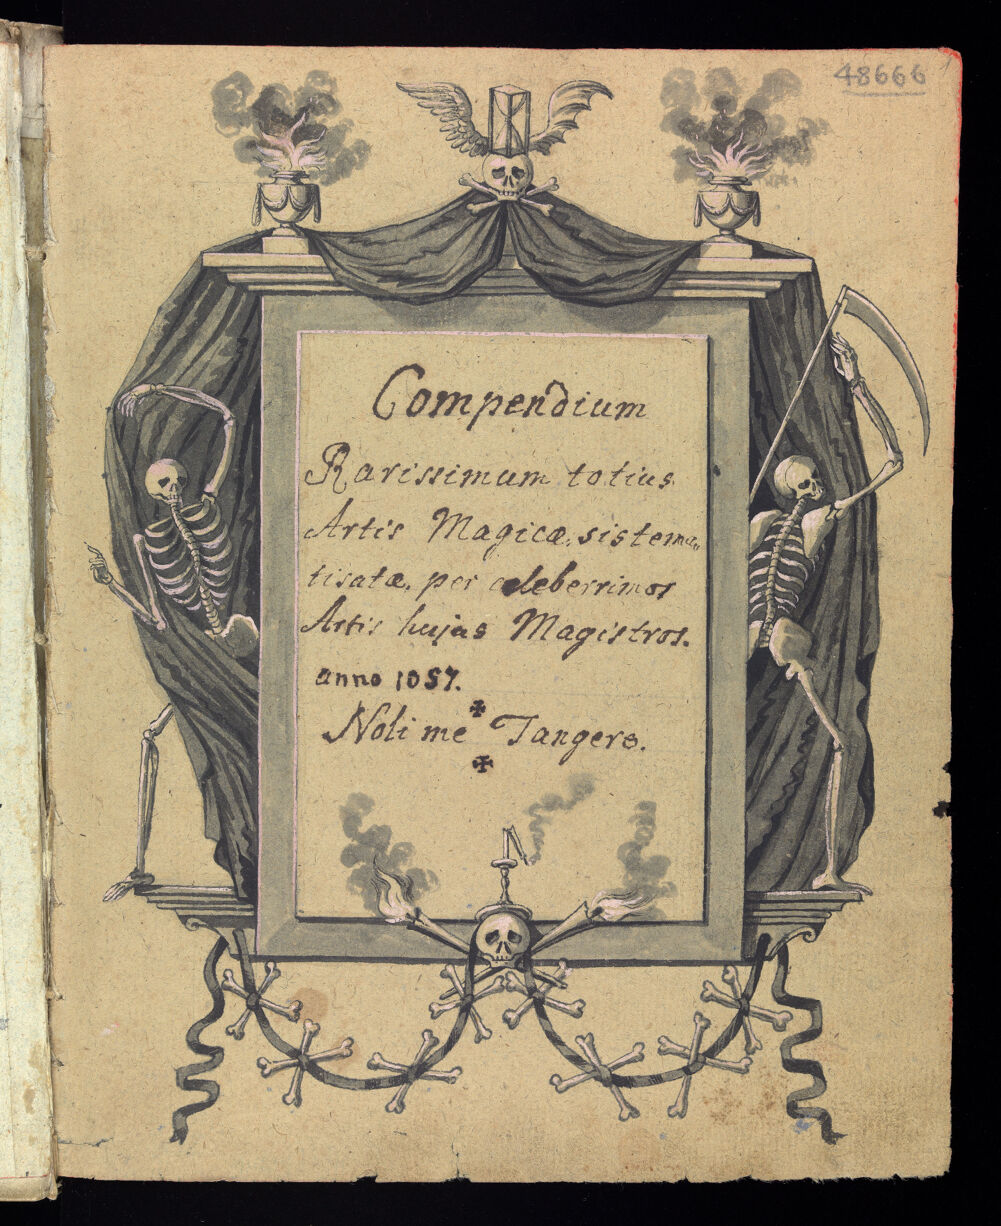 48666
Compendium
Rarissimum totius
Artis Magicæ, sistema„
tisatæ, per celeberrimos
Artis hujus Magistros.
anno 1057.
Noli me Tangere.